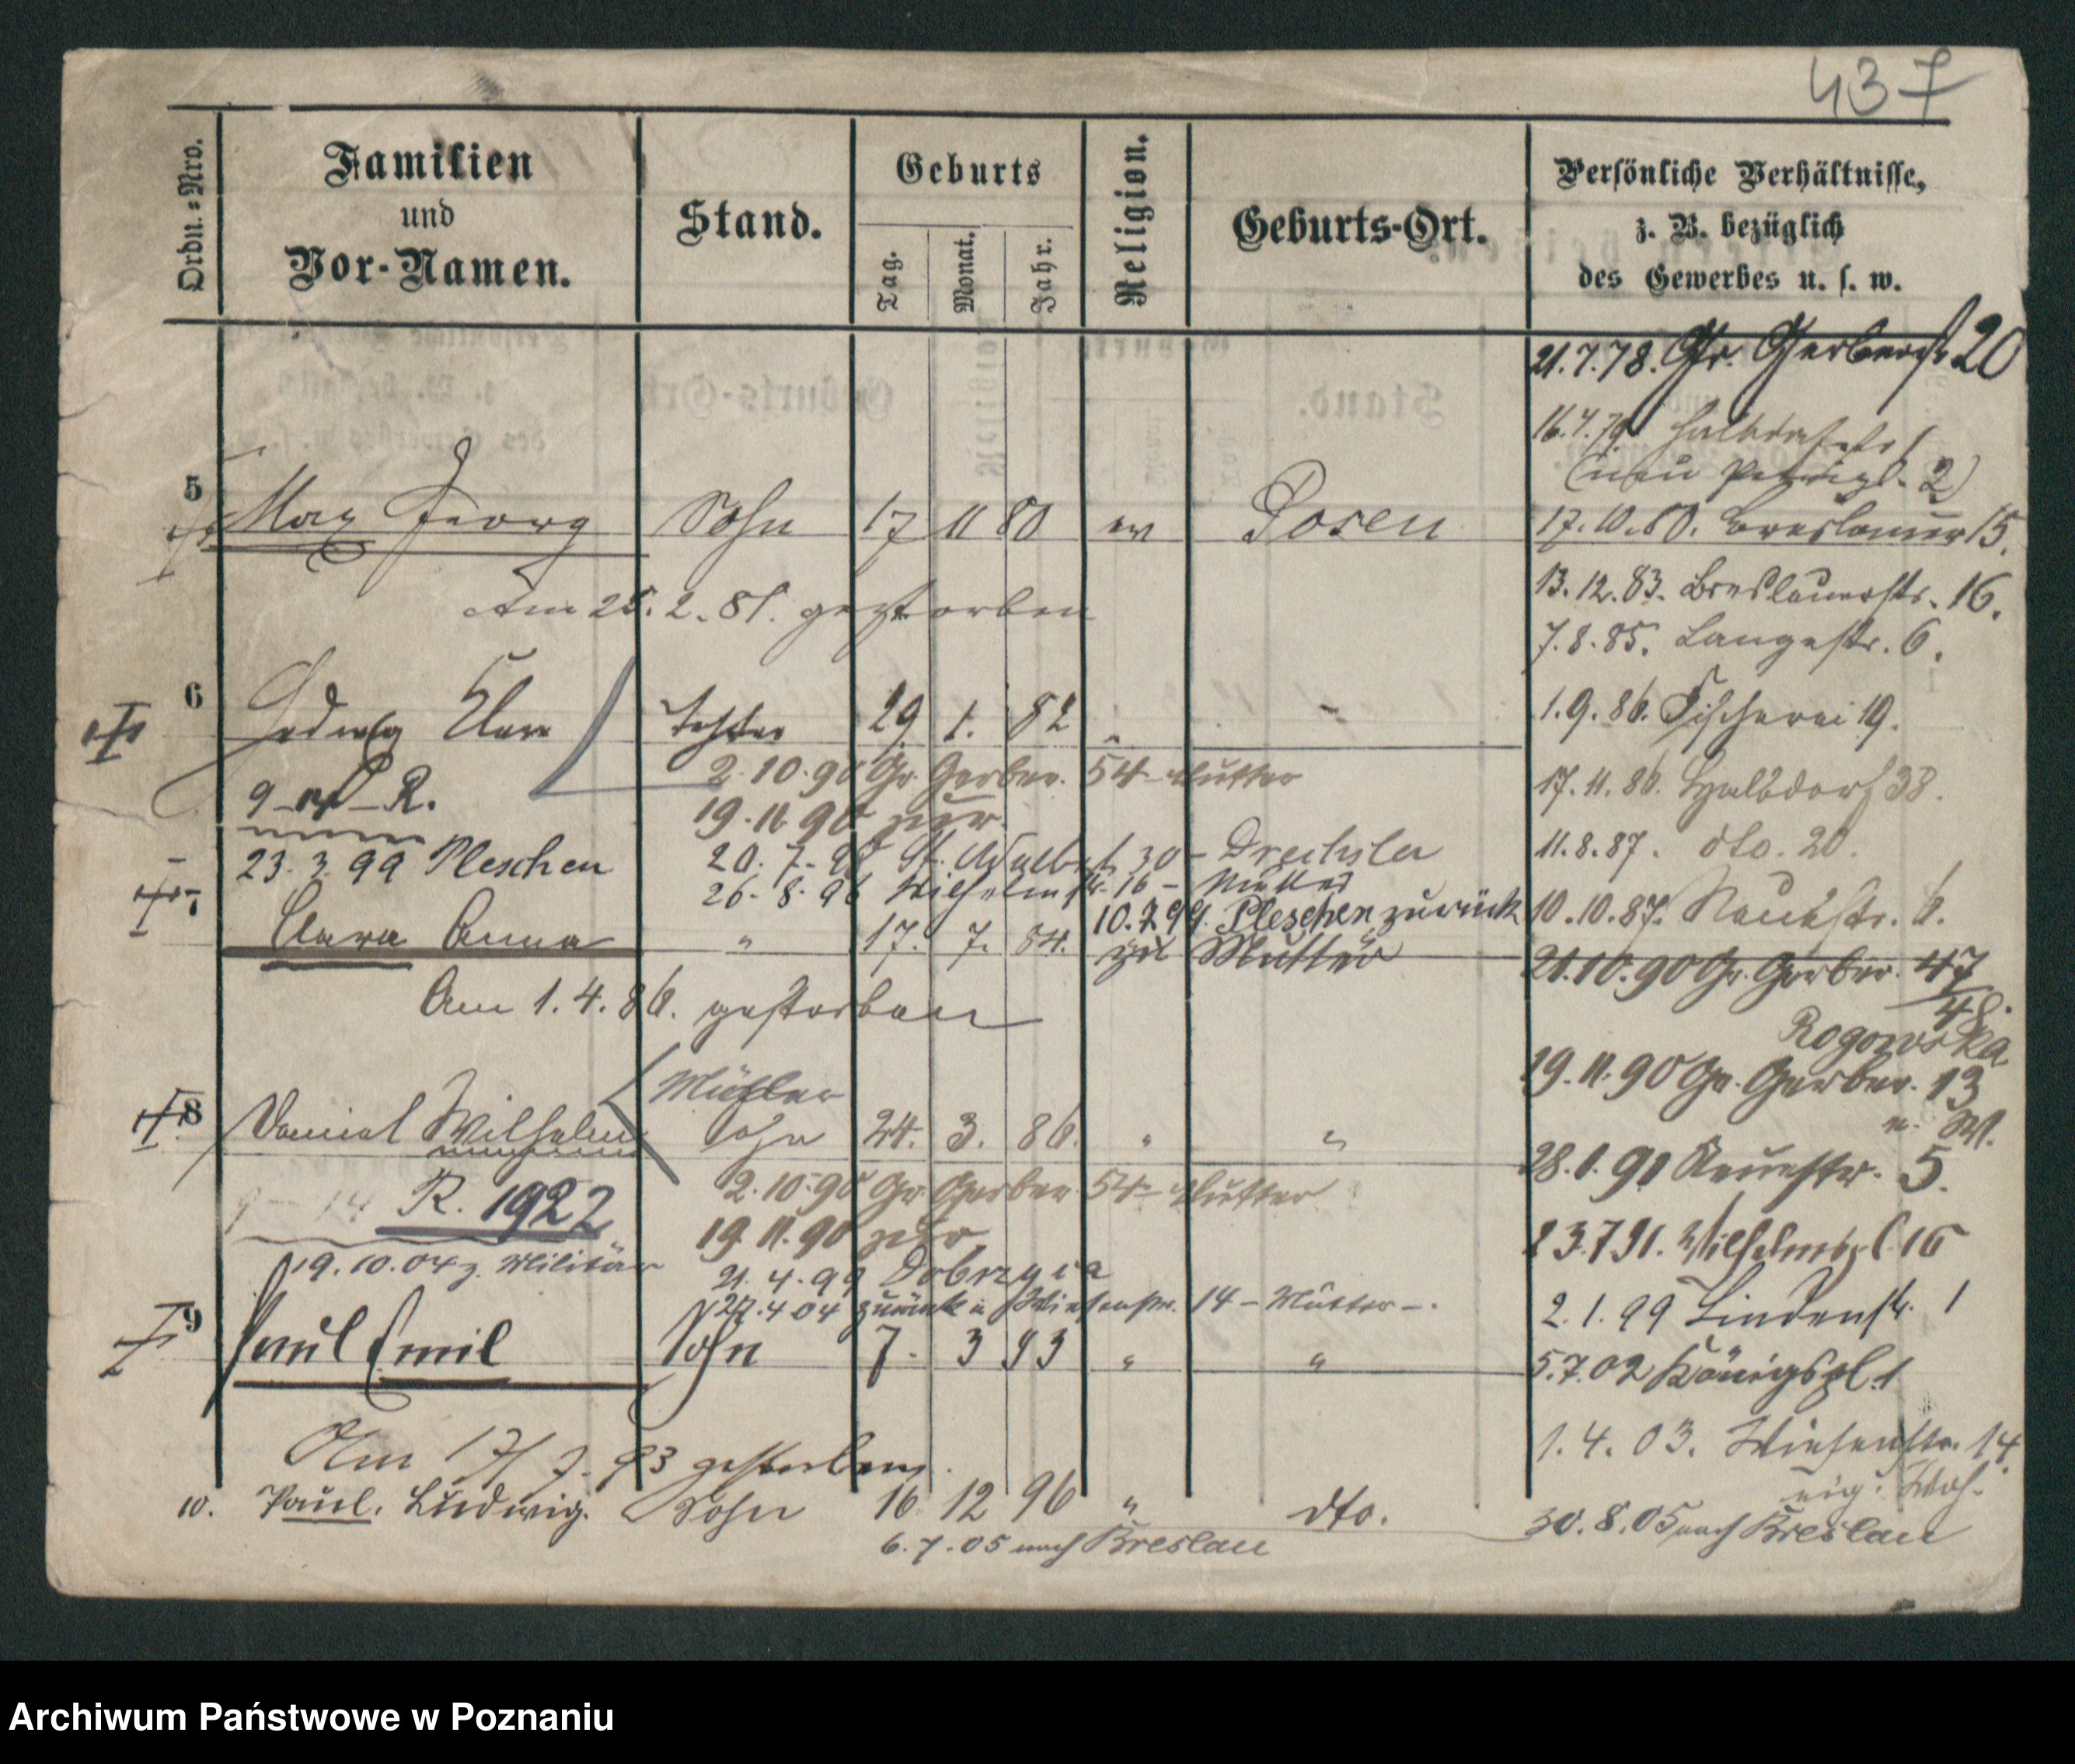 437
Ordn.-Nro.
Familien
und
Vor-Namen.
Stand.
Geburts
Tag.
Monat.
Jahr.
Religion.
Geburts-Ort.
Persönliche Verhältnisse,
z. B. bezüglich
des Gewerbes u. s. w.
21.7.78. Gr. Gerberstr 20
16.4.79
2)
5 Max Georg Sohn 17 11 80 ev Posen
17.10.80. Breslauer 15.
Am 25. 2. 81. gestorben
13.12.83. Breslauerstr. 16.
7.8.85. Langestr. 6.
6 Hedwig Clara Tochter 29 1. 82 " "
1.9.86. Fischerei 19.
2.10.90 Gr. Gerber. 54 Mutter
17.11.86. Halbdorf 38.
R.
19.11.90 zur
11.8.87. dto. 20.
23.3.99 Pleschen
20.7.98 St. Adalbert 30 – Drechsler
26.8.98 Wilhelmstr. 16 – Mutter
10.7.99. Pleschen zurück
zu Mutter
10.10.87. Neuestr. 6.
7 Clara Anna " 17. 7. 84.
21.10.90 Gr. Gerber. 47
48.
Am 1.4.86. gestorben
Rogowska
19.11.90 Gr. Gerber. 13
Müller
8 Daniel Wilhelm Sohn 24. 3. 86. " "
28.1.91 Neuestr. 5.
R. 1922
2.10.90 Gr. Gerber 54 Mutter
19.11.90 zur
23.7.91. Wilhelmspl. 16
19.10.04 z. Militär
21.4.99 Dobrzyca
27.4.04 zurück n Wiesenstr. 14 – Mutter –.
2.1.99 Lindenstr. 1
9 Paul Emil Sohn 7. 3 93 " "
5.7.02 Königspl. 1
Am 17/7. 93 gestorben.
1.4.03. Wiesenstr. 14.
eig. Woh.
10. Paul. Ludwig. Sohn 16 12 96 " dto.
6.7.05 nach Breslau
30.8.05 nach Breslau
Archiwum Państwowe w Poznaniu